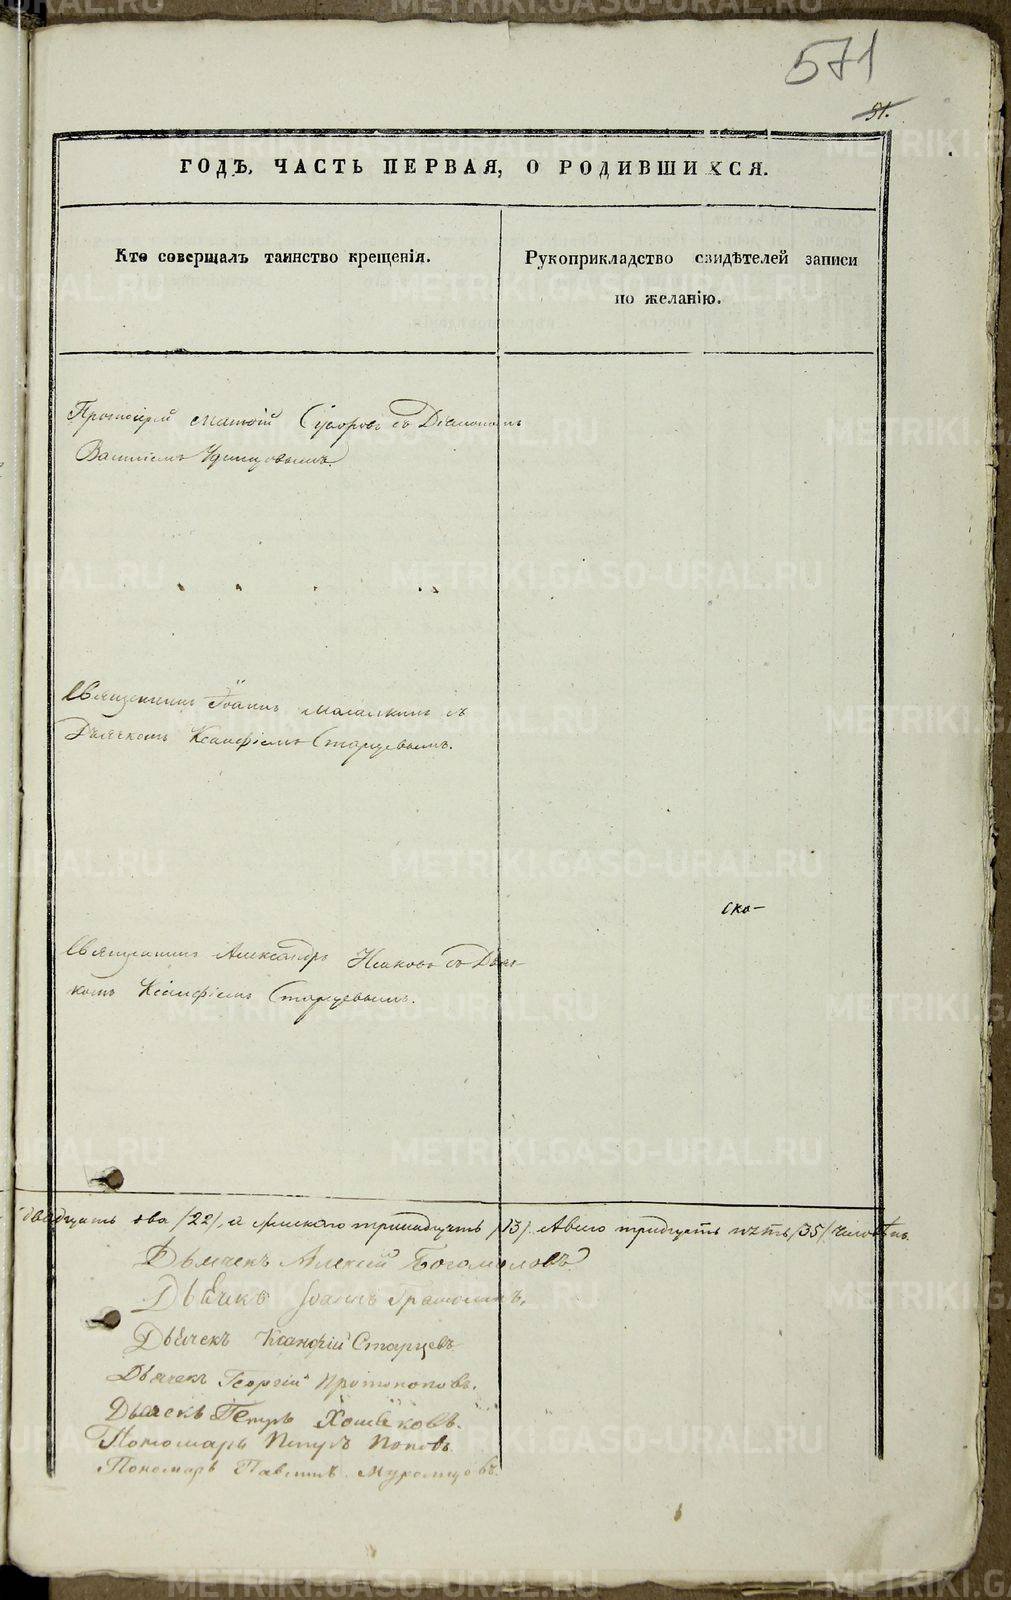 571
51.
ГОДЪ, ЧАСТЬ ПЕРВАЯ, О РОДИВШИХСЯ.
Кто совершалъ таинство крещенія.
Рукоприкладство свидѣтелей записи
по желанію.
Протоіерей Матѳій Суворовъ съ Діакономъ
Василіемъ
Священникъ Іоаннъ съ
Дьячкомъ Ксанфіемъ Старцевымъ.
ско-
Священникъ Александръ съ Дьяч-
комъ Ксанфіемъ Старцевымъ.
двадцать два /22/, а женскаго тринадцать /13/. Авсего тридцать пять /35/ человѣкъ.
Дьячекъ Алексій Богомоловъ
Дьячекъ Іоаннъ
Дьячекъ Ксанфій Старцевъ
Дьячекъ Георгій Протопоповъ.
Дьячекъ Петръ Хомяковъ.
Пономарь Петръ Поповъ
Пономарь Павелъ Муромцовъ.
METRIKI.GASO-URAL.RU